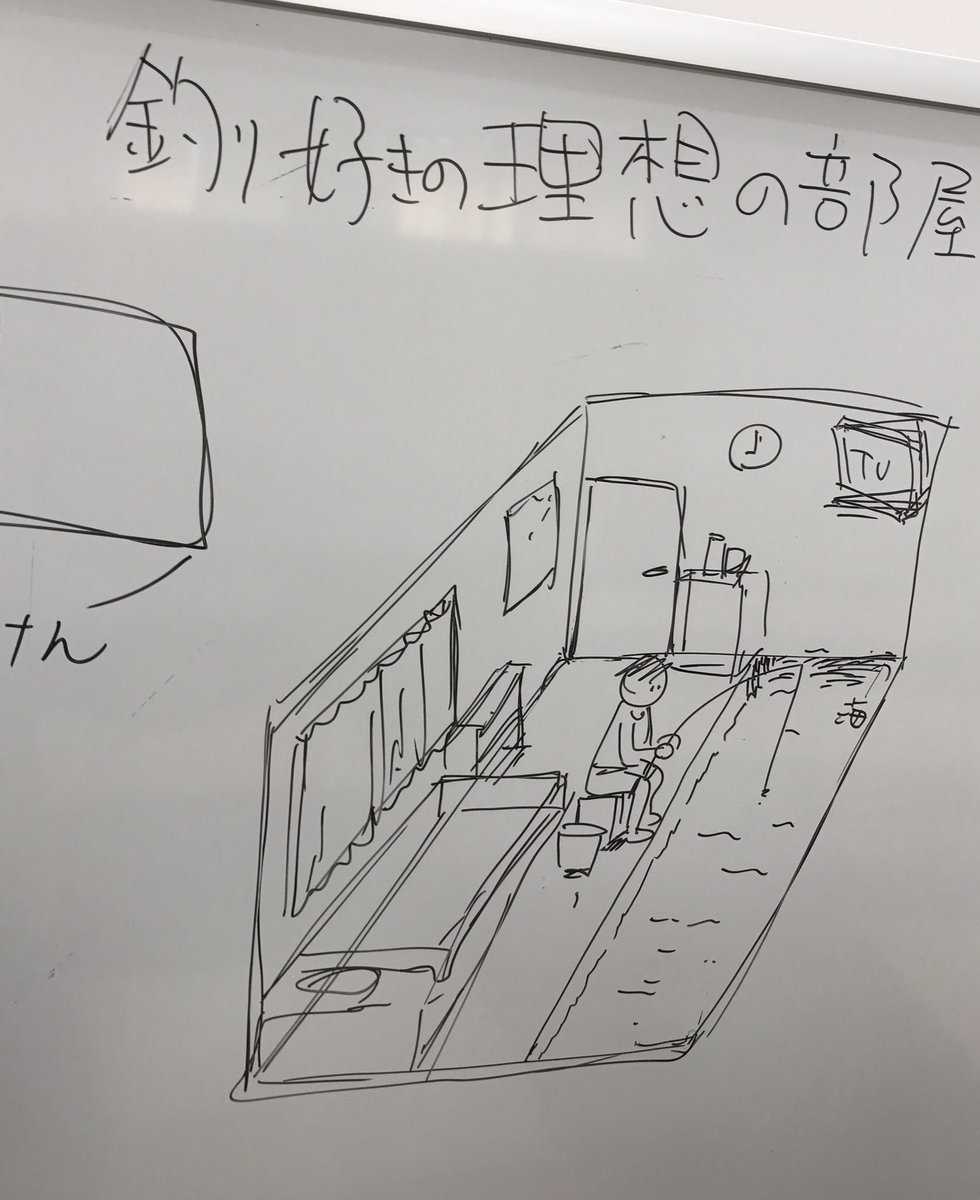 釣り好きの理想の部屋
TV
海
けん